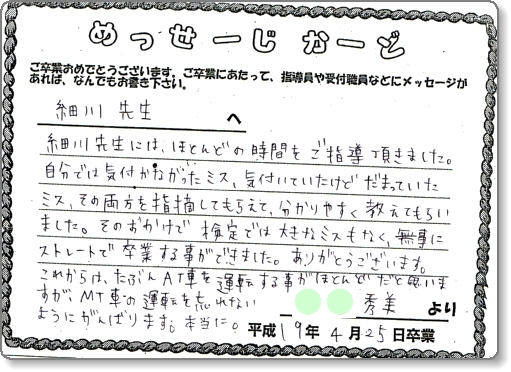 めっせーじかーど
ご卒業おめでとうございます。ご卒業にあたって、指導員や受付職員などにメッセージが
あれば、なんでもお書き下さい。
細川 先生 へ
細川先生には、ほとんどの時間をご指導頂きました。
自分では気付かなかったミス、気付いていたけどだまっていた
ミス、その両方を指摘してもらえて、分かりやすく教えてもらい
ました。そのおかげで検定では大きなミスもなく、無事に
ストレートで卒業する事ができました。ありがとうございます。
これからは、たぶんAT車を運転する事がほとんどだと思いま
すが、MT車の運転を忘れない
ようにがんばります。本当に。
秀美 より
平成19年4月25日卒業